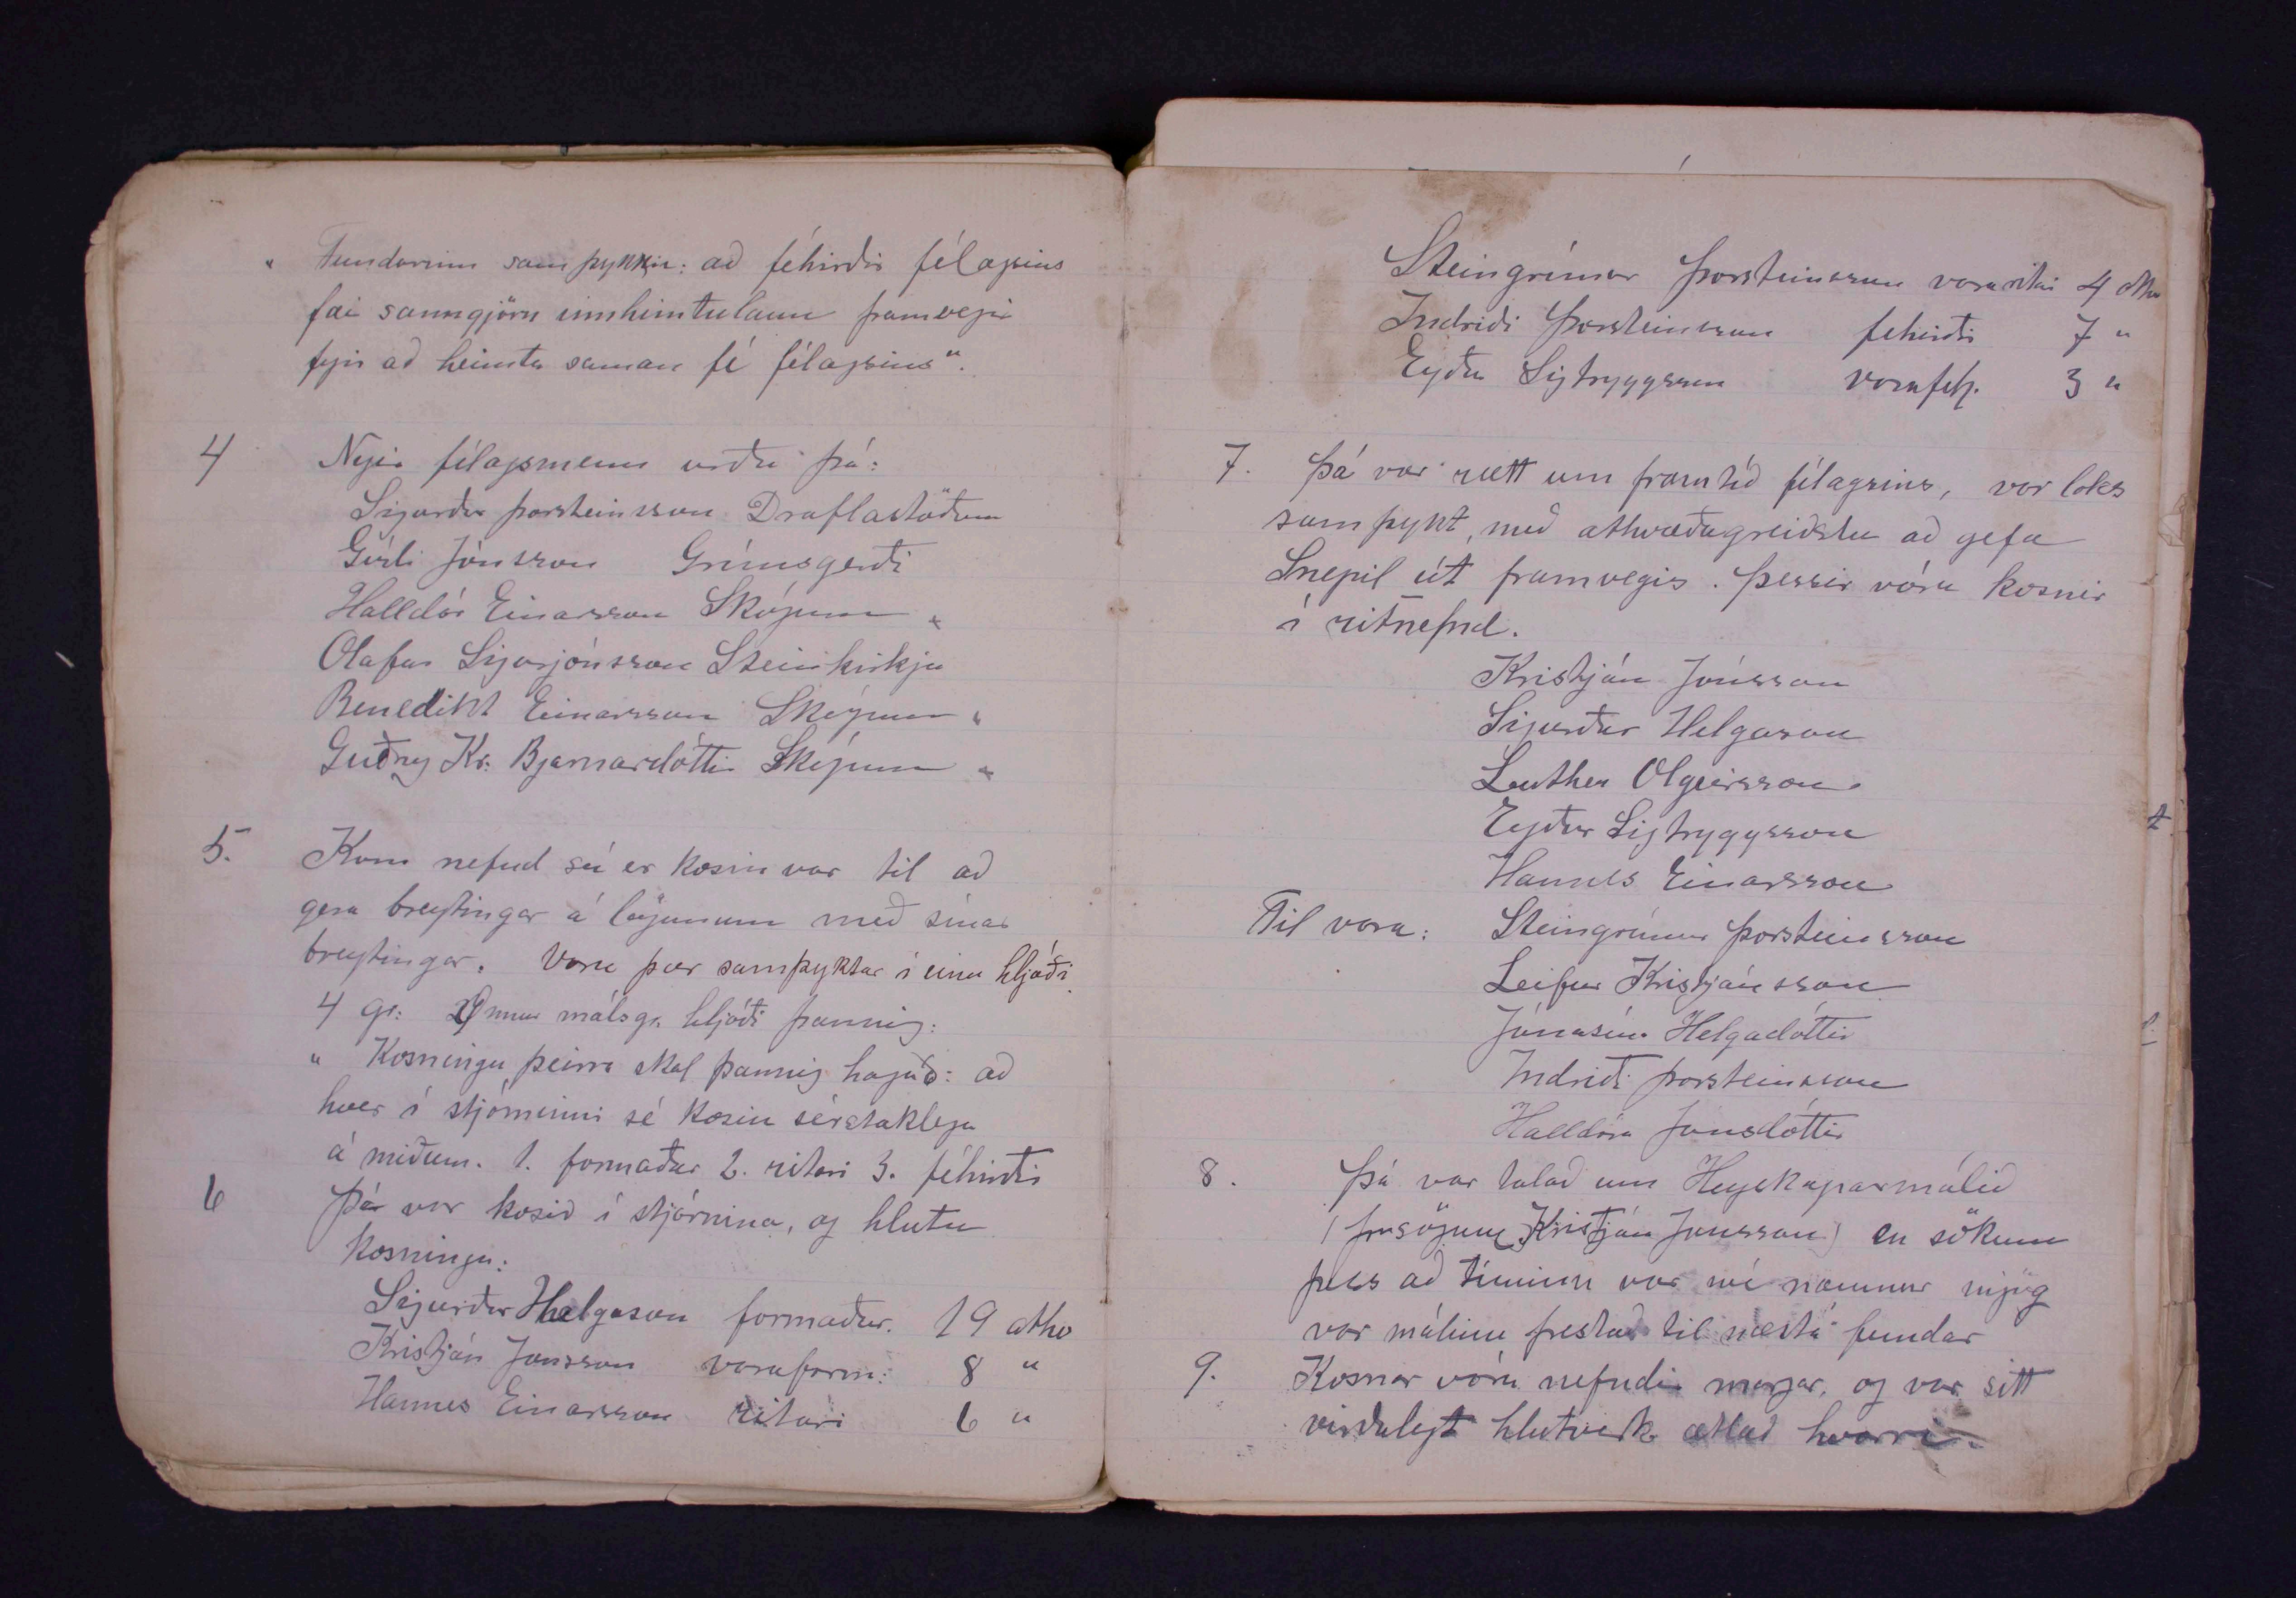 „ Fundurinn samþykkir: að féhirðir félagsins
fái sanngjörn innheimtulaun framvegis
fyrir að heimta saman fé félagsins“.
4 Nýir félagsmenn urðu þá:
Sigurður Þorsteinsson Draflastöðum
Gísli Jónsson Grímsgerði
Halldór Einarsson Skógum "
Olafur Sigurjónsson Steinkirkju
Benedikt Einarsson Skógum "
Guðný Kr. Bjarnardóttir Skógum "
5. Kom nefnd sú er kosin var til að
gera breytingar á lögunum með sínar
breytingar. Voru þær samþyktar í einu hljóði.
4 gr: Önnur málsgr. hljóði þannig:
„ Kosningu þeirra skal þannig hagað: að
hver í stjórninni sé kosin sérstaklega
á miðum. 1. formaður 2. ritari 3. féhirðir
6 Þá var kosið í stjórnina, og hlutu
kosningu:
Sigurður Helgason formaður. 19 atkv
Kristján Jónsson varaform: 8 "
Hannes Einarsson ritari 6 "
Steingrímur Þorsteinsson vararitari 4 atkv
Indriði Þorsteinsson fehirðir 7 "
Eyður Sigtryggsson varafeh. 3 "
7. Þá var rætt um framtíð félagsins, var loks
samþykt, með atkvæðagreiðslu að gefa
Snepil út framvegis. Þessir vóru kosnir
í ritnefnd.
Kristján Jónsson
Sigurður Helgason
Luther Olgeirsson
Eyður Sigtryggsson
Hannes Einarsson
Til vara: Steingrímur Þorsteinsson
Leifur Kristjánsson
Jónasína Helgadóttir
Indriði Þorsteinsson
Halldóra Jónsdóttir
8. Þá var talað um Heyskaparmálið
(frasögum. Kristján Jónsson) en sökum
þess að tíminn var nú naumur mjög
var málinu frestað til næsta fundar
9. Kosnar vóru nefndir margar, og var sitt
virðulegt hlutverk ætlað hvorri.